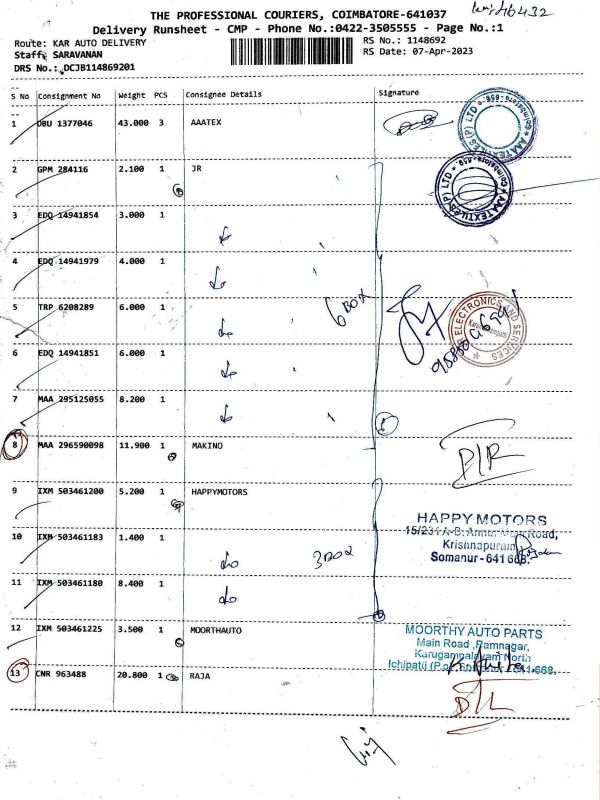 THE PROFESSIONAL COURIERS, COIMBATORE-641037
Delivery Runsheet - CMP - Phone No.:0422-3505555 - Page No.:1
Route: KAR AUTO DELIVERY
RS No.: 1148692
Staff: SARAVANAN
RS Date: 07-Apr-2023
DRS No.: DCJB114869201
S No Consignment No Weight PCS Consignee Details Signature
1 DBU 1377046 43.000 3 AAATEX
2 GPM 284116 2.100 1 JR
3 EDQ 14941854 3.000 1 do
4 EDQ 14941979 4.000 1 do
5 TRP 6208289 6.000 1 do 6 BOX
6 EDQ 14941851 6.000 1 do
7 MAA 295125055 8.200 1 do
8 MAA 296590098 11.900 1 MAKINO D/R
9 IXM 503461200 5.200 1 HAPPYMOTORS
HAPPY MOTORS
Krishnapuram,
Somanur - 641 668.
10 IXM 503461183 1.400 1 do
11 IXM 503461180 8.400 1 do
12 IXM 503461225 3.500 1 MOORTHAUTO
MOORTHY AUTO PARTS
Main Road, Ramnagar,
Karugampalayam North
13 CNR 963488 20.800 1 RAJA D/R
AAA TEXTILES (P) LTD
Coimbatore-659
AAA TEXTILES (P) LTD
Coimbatore-659
ELECTRONICS AND SERVICES